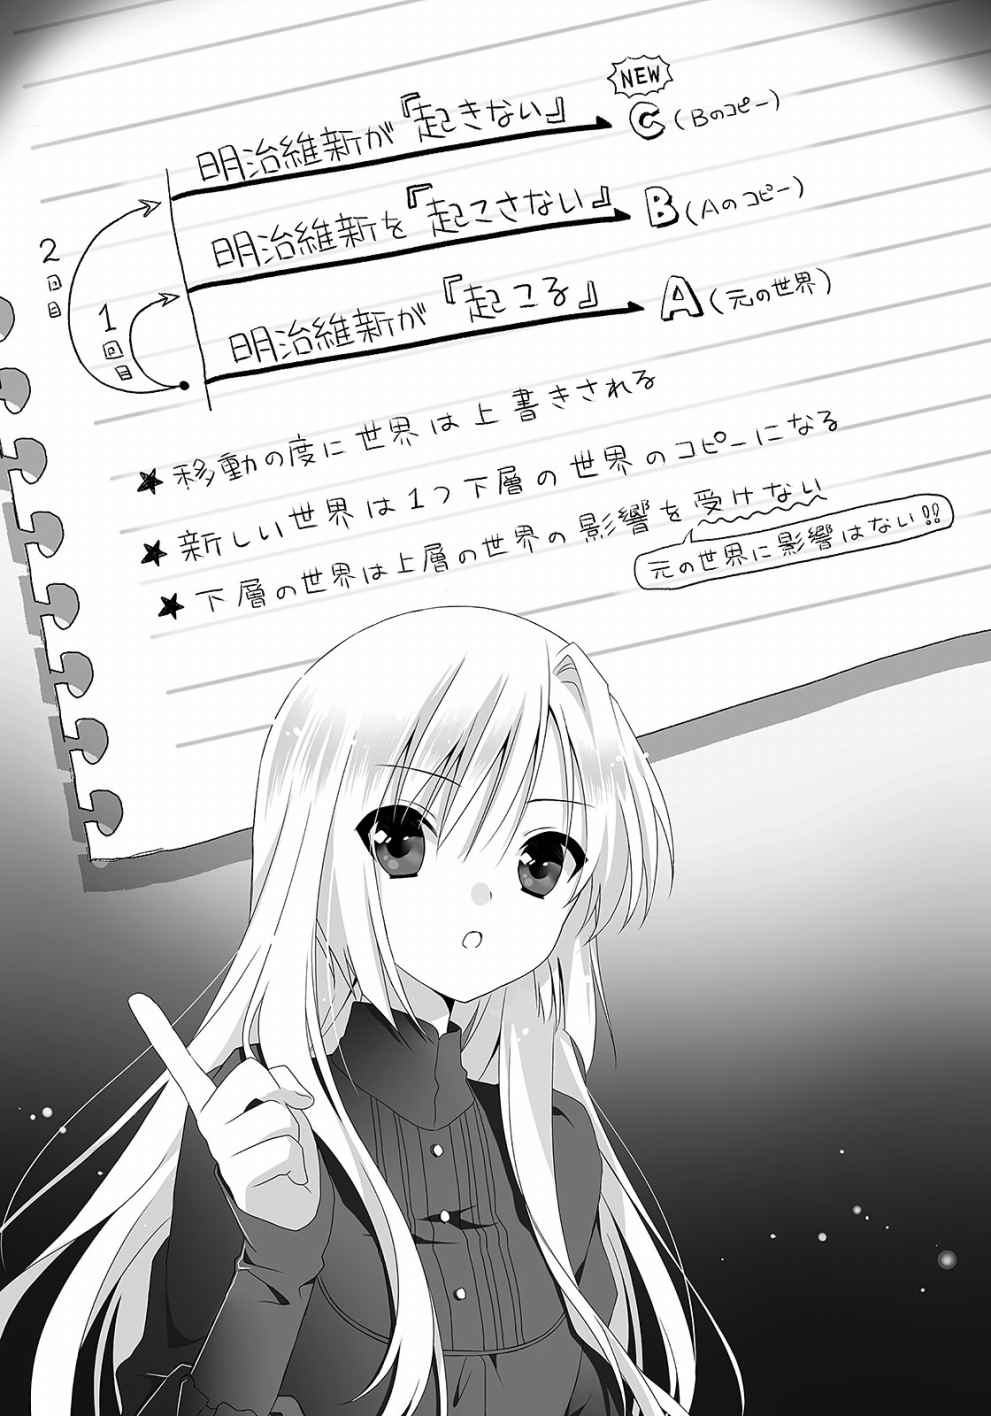 NEW
明治維新が『起きない』 C (Bのコピー)
明治維新を『起こさない』 B (Aのコピー)
明治維新が『起こる』 A (元の世界)
2回目
1回目
★移動の度に世界は上書きされる
★新しい世界は1つ下層の世界のコピーになる
★下層の世界は上層の世界の影響を受けない
元の世界に影響はない!!